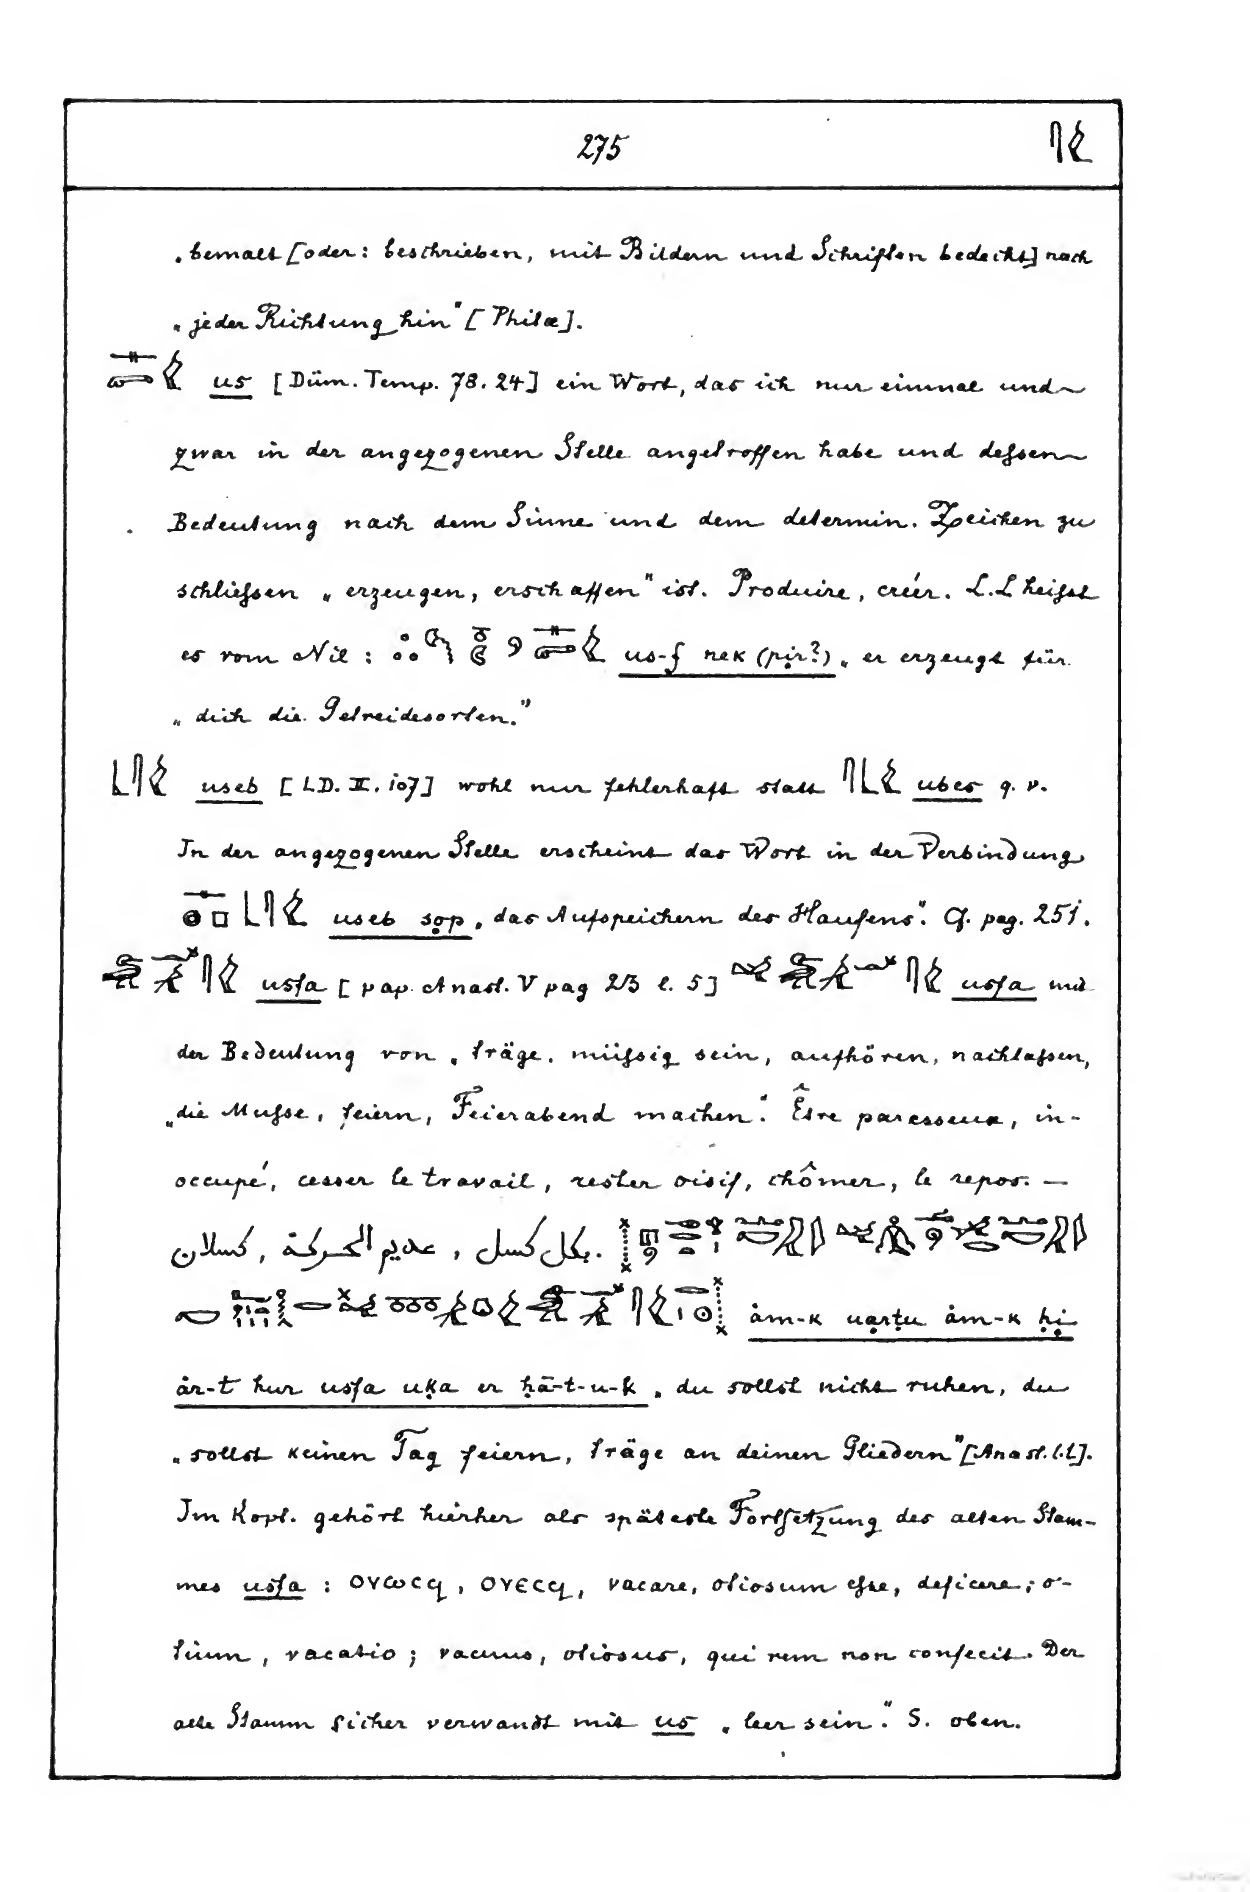 275
„bemalt [oder: beschrieben, mit Bildern und Schriften bedeckt] nach
„jeder Richtung hin" [Philæ].
us [Düm. Temp. 78. 24] ein Wort, das ich nur einmal und
zwar in der angezogenen Stelle angetroffen habe und dessen
Bedeutung nach dem Sinne und dem determin. Zeichen zu
schliessen „erzeugen, erschaffen" ist. Produire, créer. L.L heisst
es vom Nil : us-f nek (pịr?) „er erzeugt für
„dich die Getreidesorten."
useb [LD. II. 107] wohl nur fehlerhaft statt ubes q. v.
In der angezogenen Stelle erscheint das Wort in der Verbindung
useb sọp „das Aufspeichern des Haufens". Cf. pag. 251.
usfa [pap. Anast. V pag 23 l. 5] usfa mit
der Bedeutung von „träge, müssig sein, aufhören, nachlassen,
„die Musse, feiern, Feierabend machen". Être paresseux, in-
occupé, cesser le travail, rester oisif, chômer, le repos. —
بكل كسل , عديم الحركة , كسلان.
åm-k uạrṭu åm-k ḥị
år-t hur usfa uḳa er ḥā-t-u-k „du sollst nicht ruhen, du
„sollst keinen Tag feiern, träge an deinen Gliedern" [Anast. l.l].
Im Kopt. gehört hierher als späteste Fortsetzung des alten Stam-
mes usfa : ⲟⲩⲱⲥϥ, ⲟⲩⲉⲥϥ, vacare, otiosum esse, deficere; o-
tium, vacatio; vacuus, otiosus, qui rem non confecit. Der
alte Stamm sicher verwandt mit us „leer sein". S. oben.